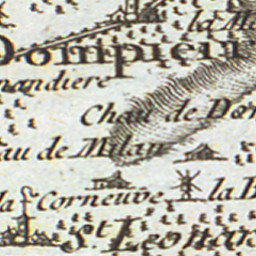 la M
Dompierr
mandiere
Chau de Dom
au de Milan
la Corneuve la B
St Leonar